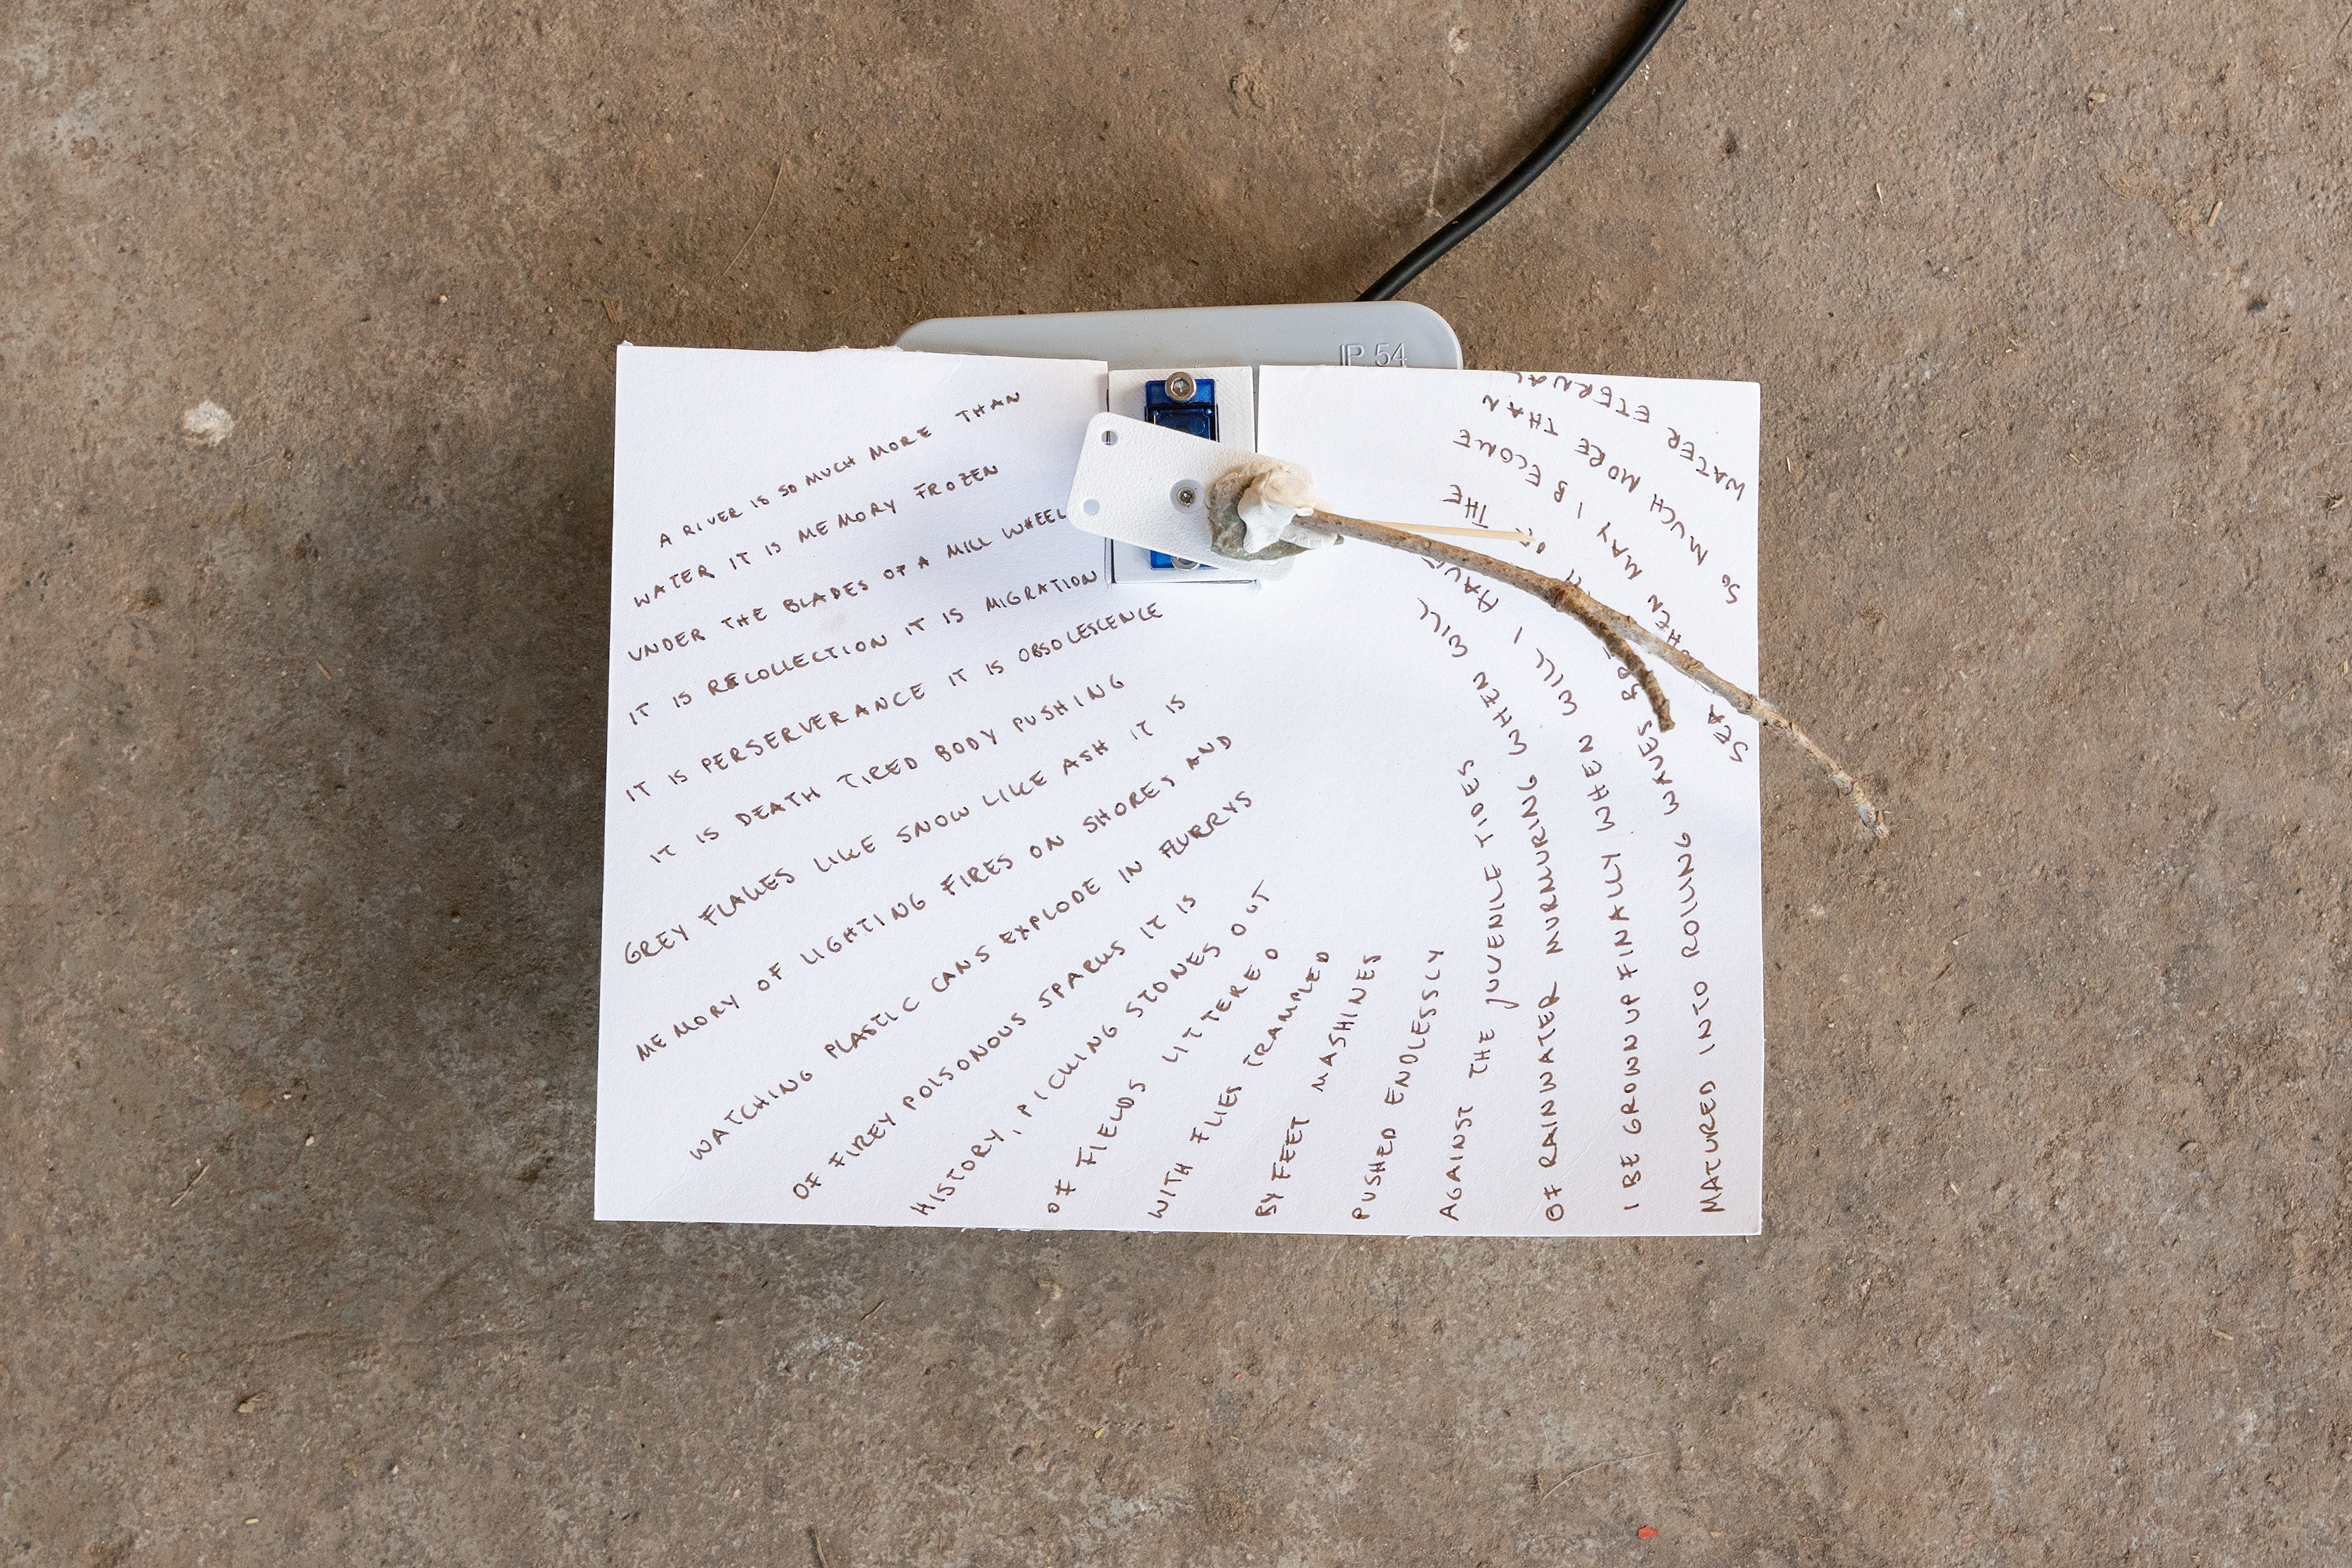 IP 54
A RIVER IS SO MUCH MORE THAN
WATER IT IS MEMORY FROZEN
UNDER THE BLADES OF A MILL WHEEL
IT IS RECOLLECTION IT IS MIGRATION
IT IS PERSERVERANCE IT IS OBSOLESCENCE
IT IS DEATH TIRED BODY PUSHING
GREY FLAKES LIKE SNOW LIKE ASH IT IS
MEMORY OF LIGHTING FIRES ON SHORES AND
WATCHING PLASTIC CANS EXPLODE IN FLURRYS
OF FIREY POISONOUS SPARKS IT IS
HISTORY, PICKING STONES OUT
OF FIELDS LITTERED
WITH FLIES TRAMPLED
BY FEET MASHINES
PUSHED ENDLESSLY
AGAINST THE JUVENILE TIDES
OF RAINWATER MURMURING WHEN WILL
I BE GROWN UP FINALLY WHEN WILL I HAVE
MATURED INTO ROLLING WAVES THE
SEA WHEN MAY I BECOME
SO MUCH MORE THAN
WATER ETERNAL